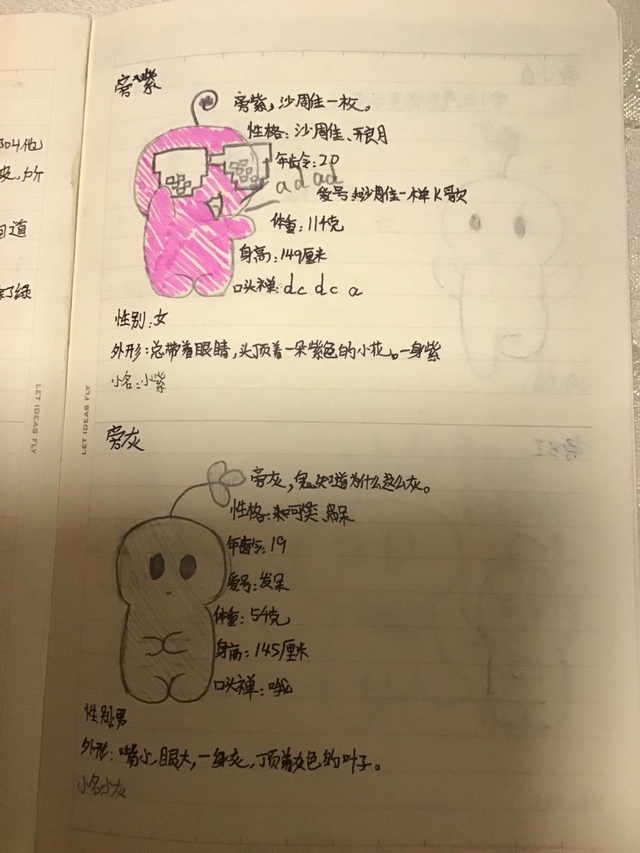 旁紫
旁紫，沙周隹一枚。
性格：沙周隹、
年龄：20
adaad
体重：114克
身高：149厘米
口头禅：dc dc a
性别：女
外形：总带着眼睛，头顶着一朵紫色的小花。一身紫
小名：小紫
旁灰
旁灰，鬼知道为什么这么灰。
性格：
年龄：19
爱号：发呆
体重：54克
身高：145厘米
口头禅：哦
性别男
外形：嘴小眼大，一身灰，顶着灰色的叶子。
小名小灰
LET IDEAS FLY
LET IDEAS FLY